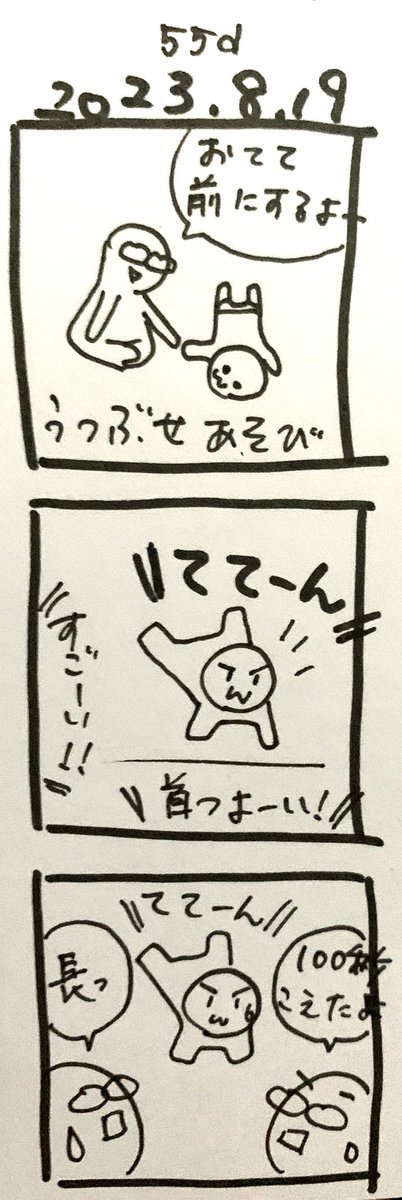 55d
2023.8.19
おてて
前にするよー
うつぶせあそび
ててーん
すごーい!!
首つよーい!
ててーん
長っ
100秒
こえたよ